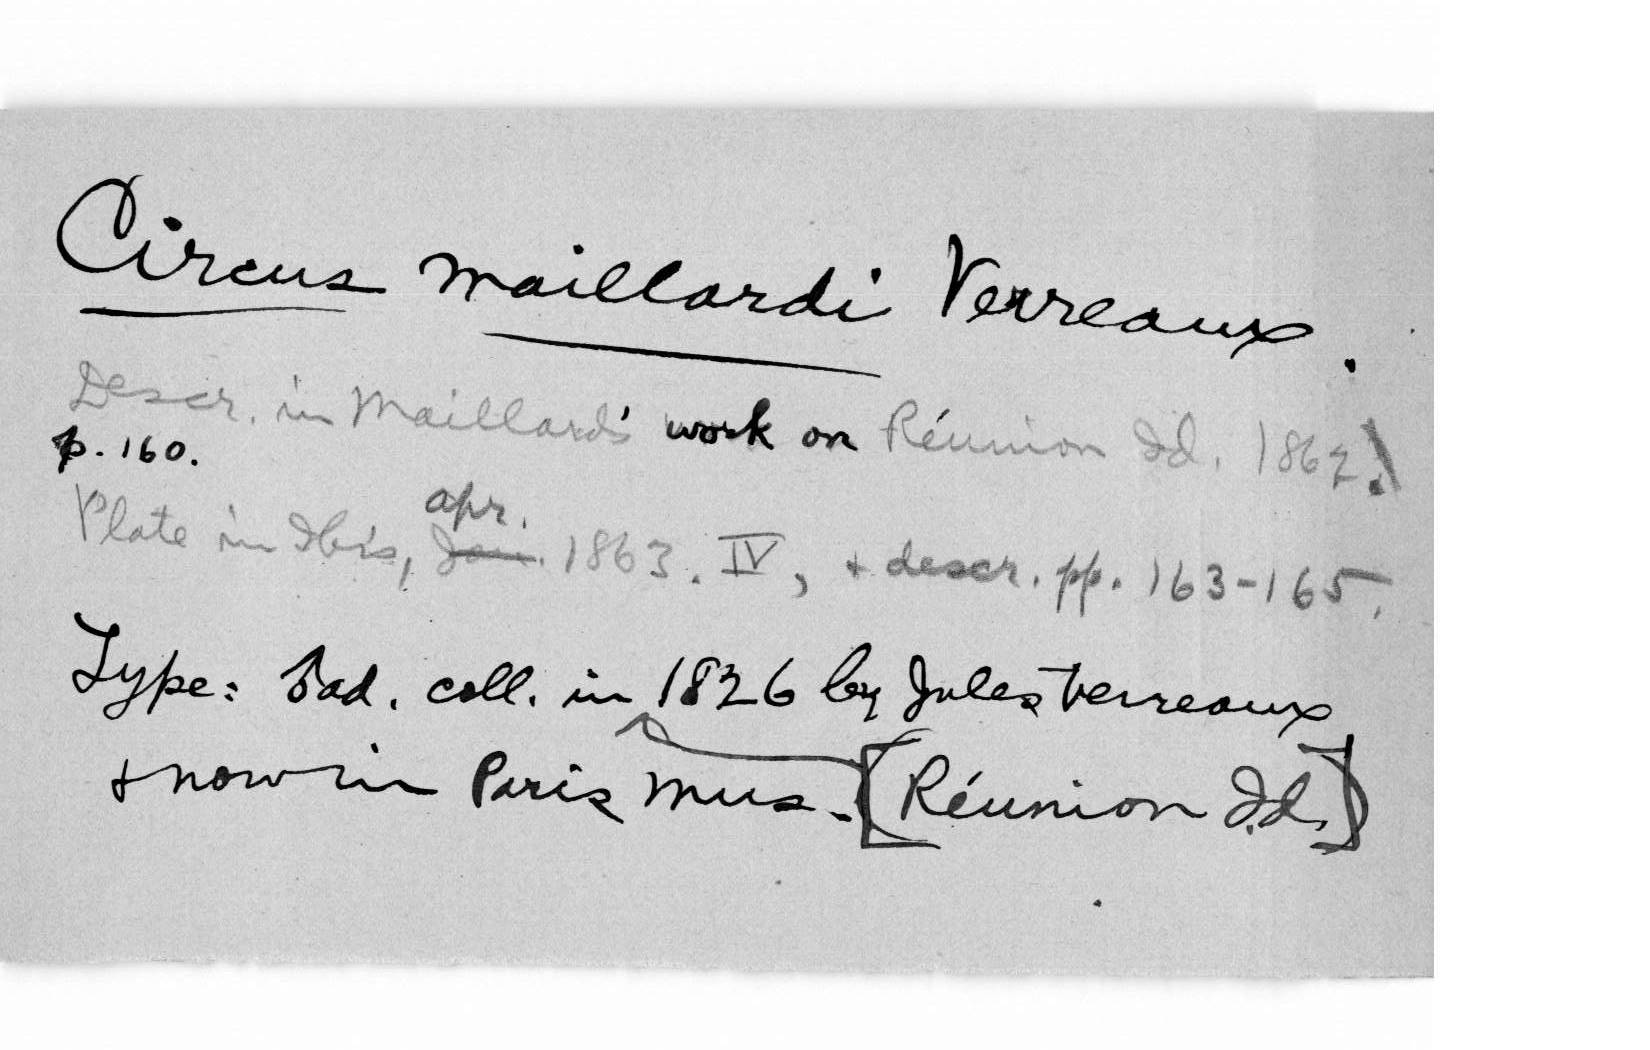 Circus maillardi Verreaux.
Descr. in Maillard's work on Réunion Id. 1862.)
p. 160.
apr.
Plate in Ibis, Jan. 1863. IV, + descr. pp. 163-165.
Type: ad. coll. in 1826 by Jules Verreaux
+ now in Paris Mus. [Réunion Id.]